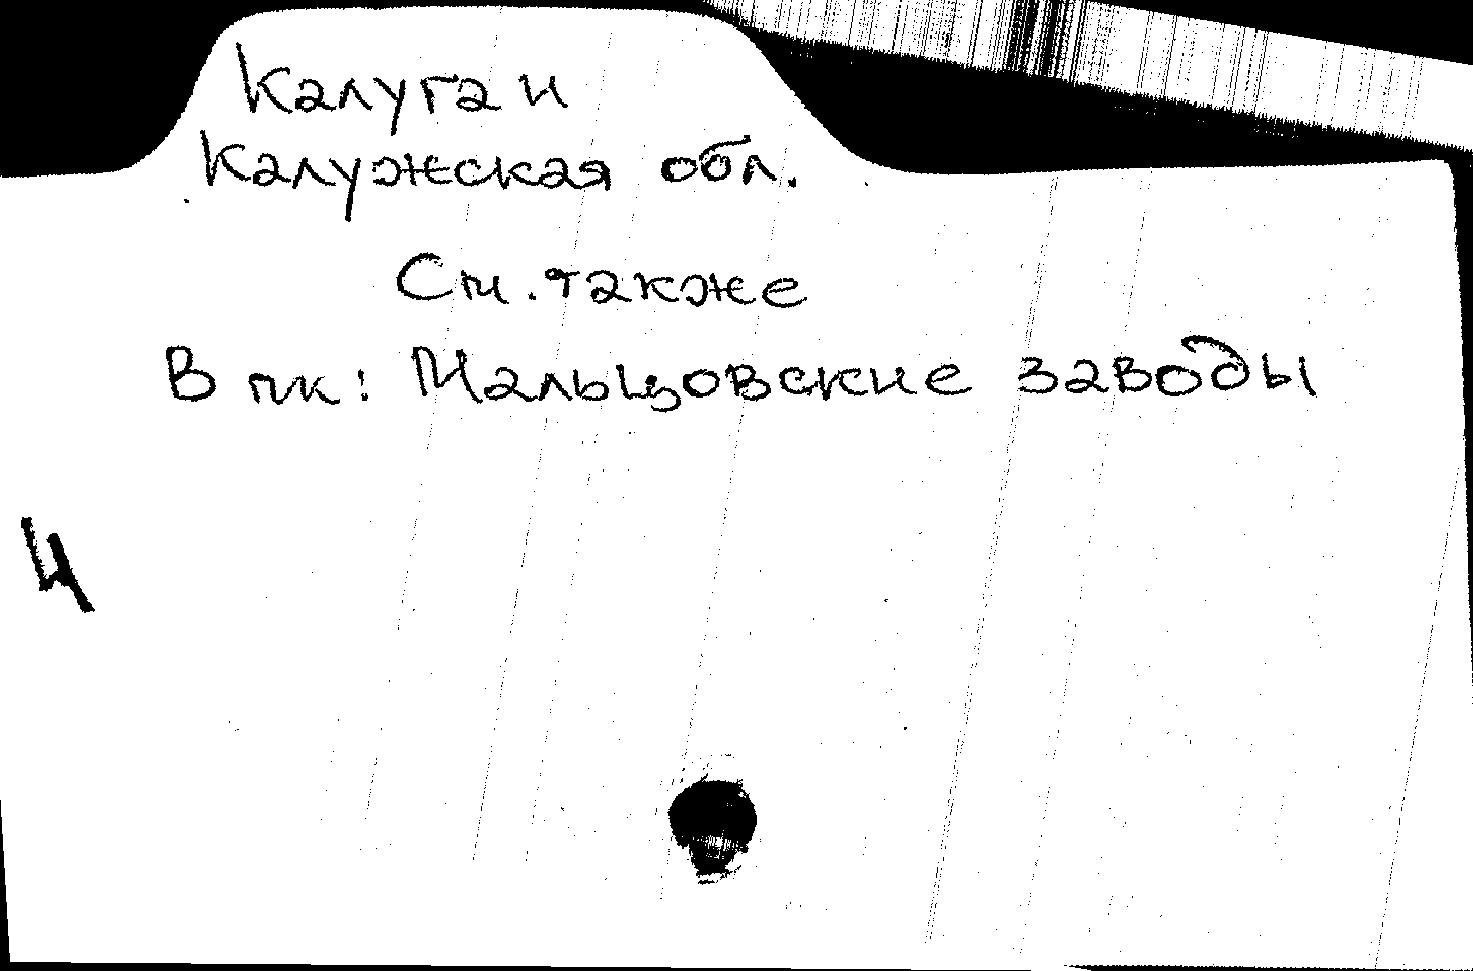 Калуга и
Калужская обл.
См. также
В пк: Мальцовские заводы
4